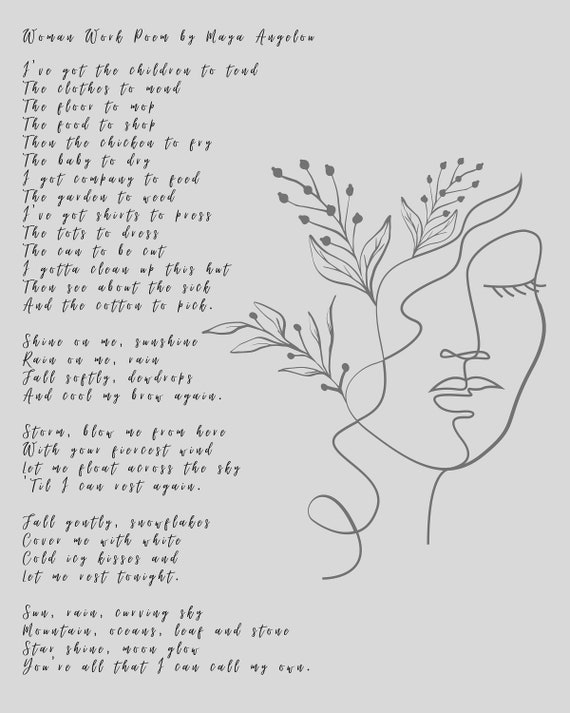 Woman Work Poem by Maya Angelou
I've got the children to tend
The clothes to mend
The floor to mop
The food to shop
Then the chicken to fry
The baby to dry
I got company to feed
The garden to weed
I've got shirts to press
The tots to dress
The can to be cut
I gotta clean up this hut
Then see about the sick
And the cotton to pick.
Shine on me, sunshine
Rain on me, rain
Fall softly, dewdrops
And cool my brow again.
Storm, blow me from here
With your fiercest wind
Let me float across the sky
'Til I can rest again.
Fall gently, snowflakes
Cover me with white
Cold icy kisses and
Let me rest tonight.
Sun, rain, curving sky
Mountain, oceans, leaf and stone
Star shine, moon glow
You're all that I can call my own.